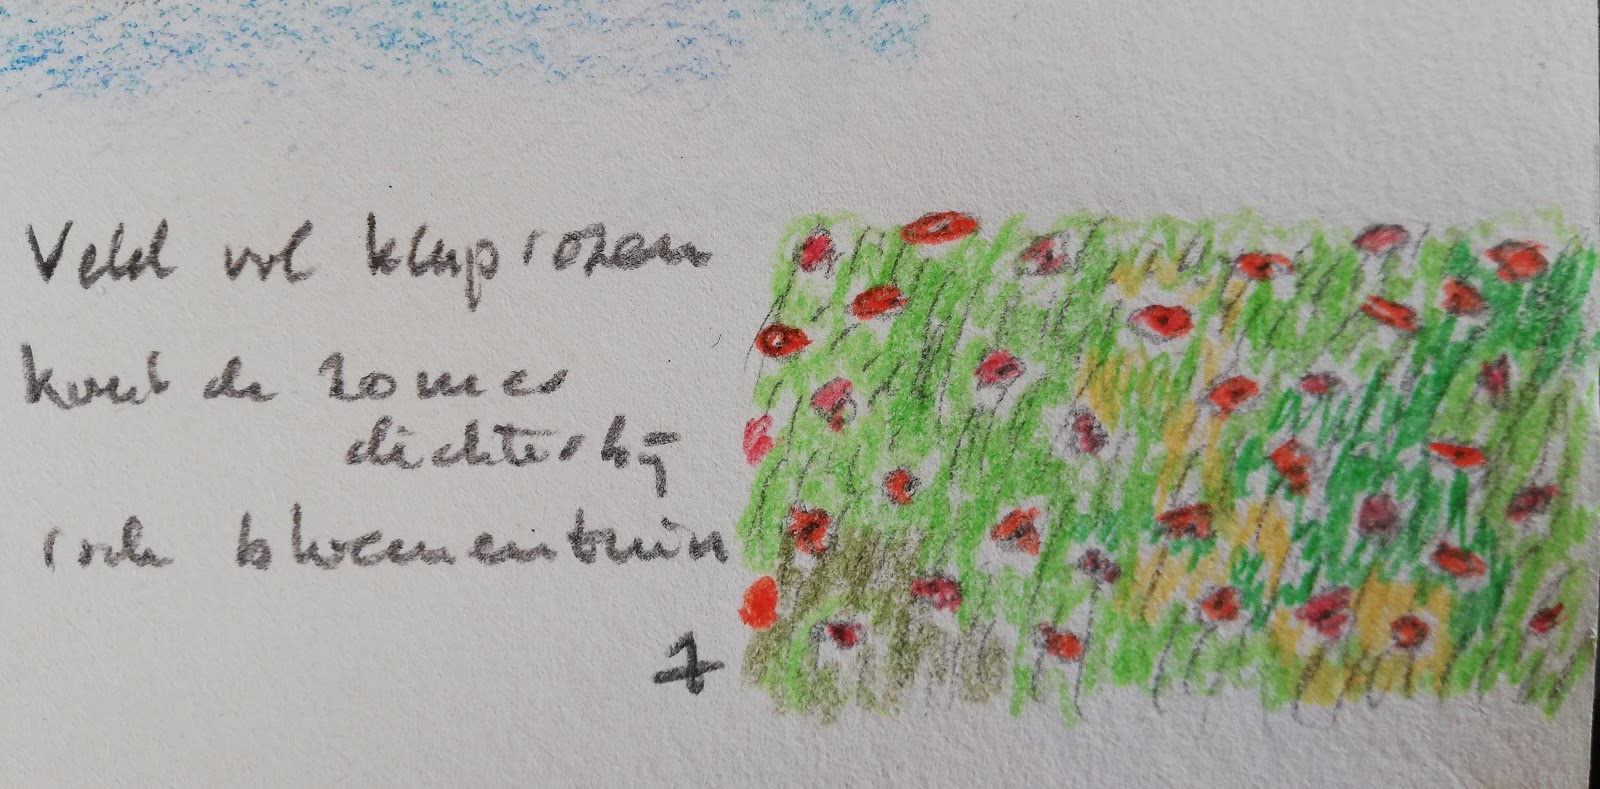 Veld vol klaprozen
komt de zomer
dichterbij
rode bloementuin